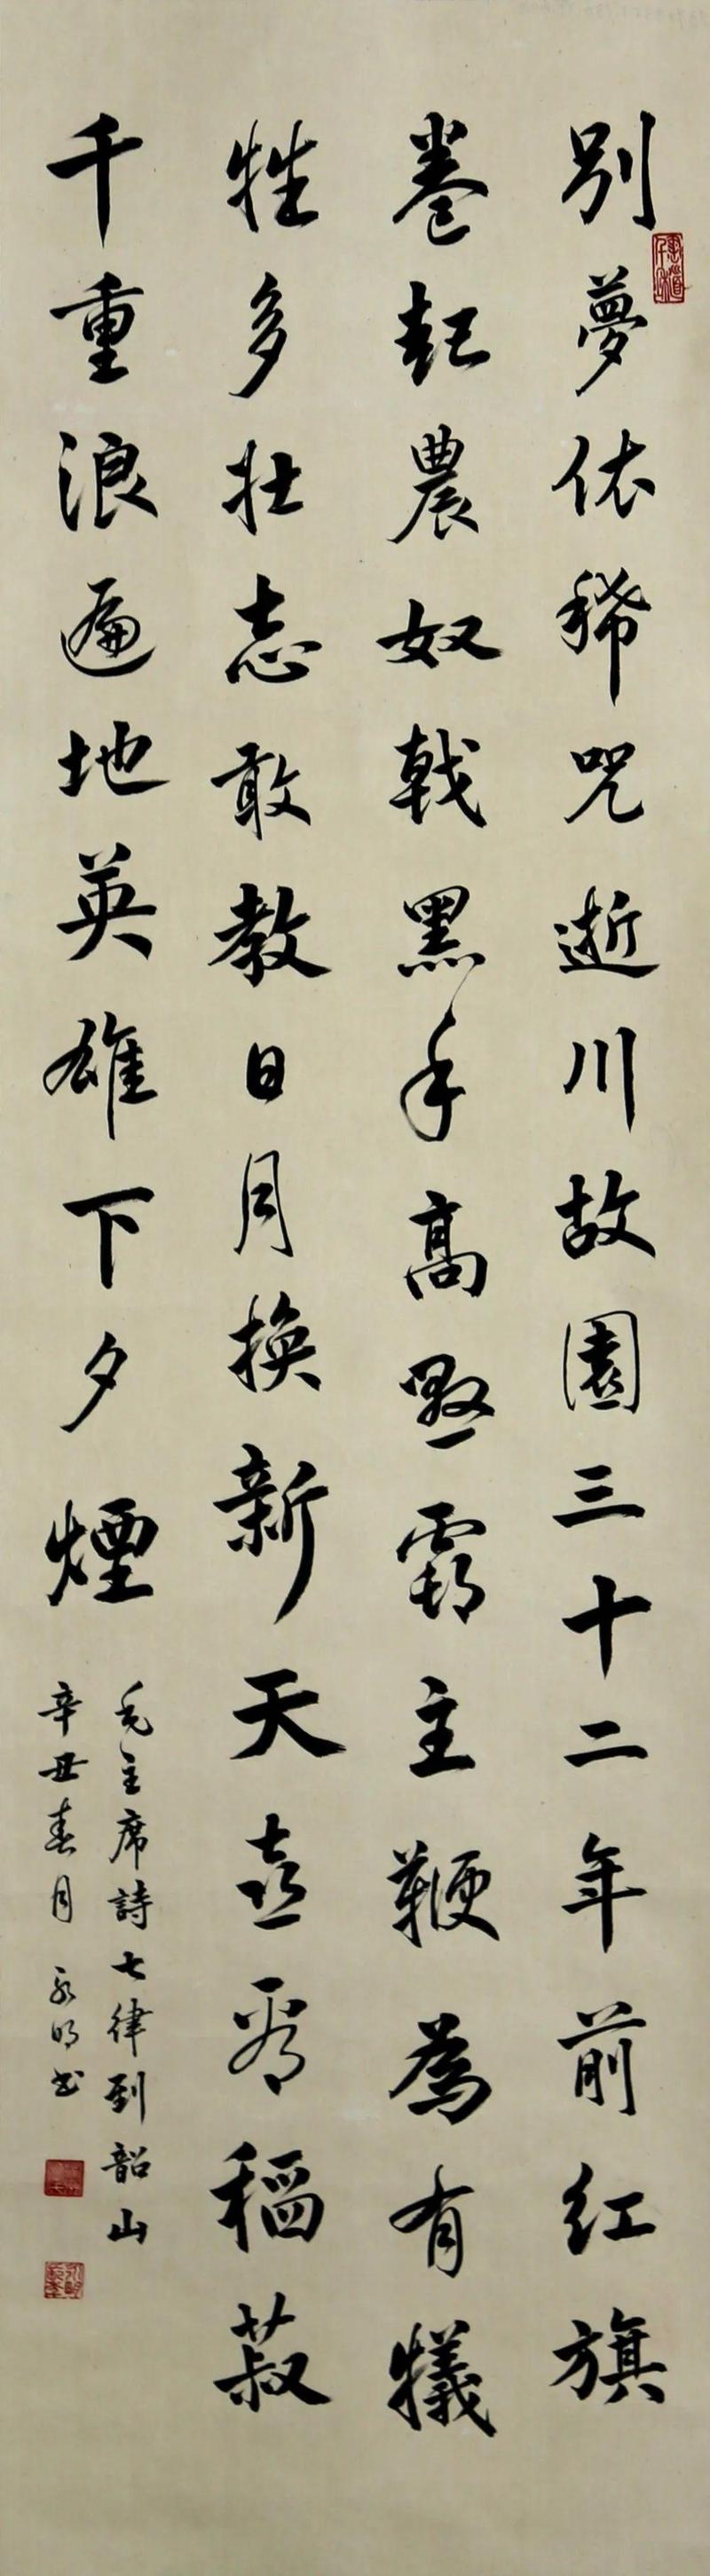 別夢依稀咒逝川故園三十二年前紅旗
卷起農奴戟黑手高懸霸主鞭為有犧
牲多壯志敢教日月換新天喜看稻菽
千重浪遍地英雄下夕煙
毛主席詩七律到韶山
辛丑春月 永明书